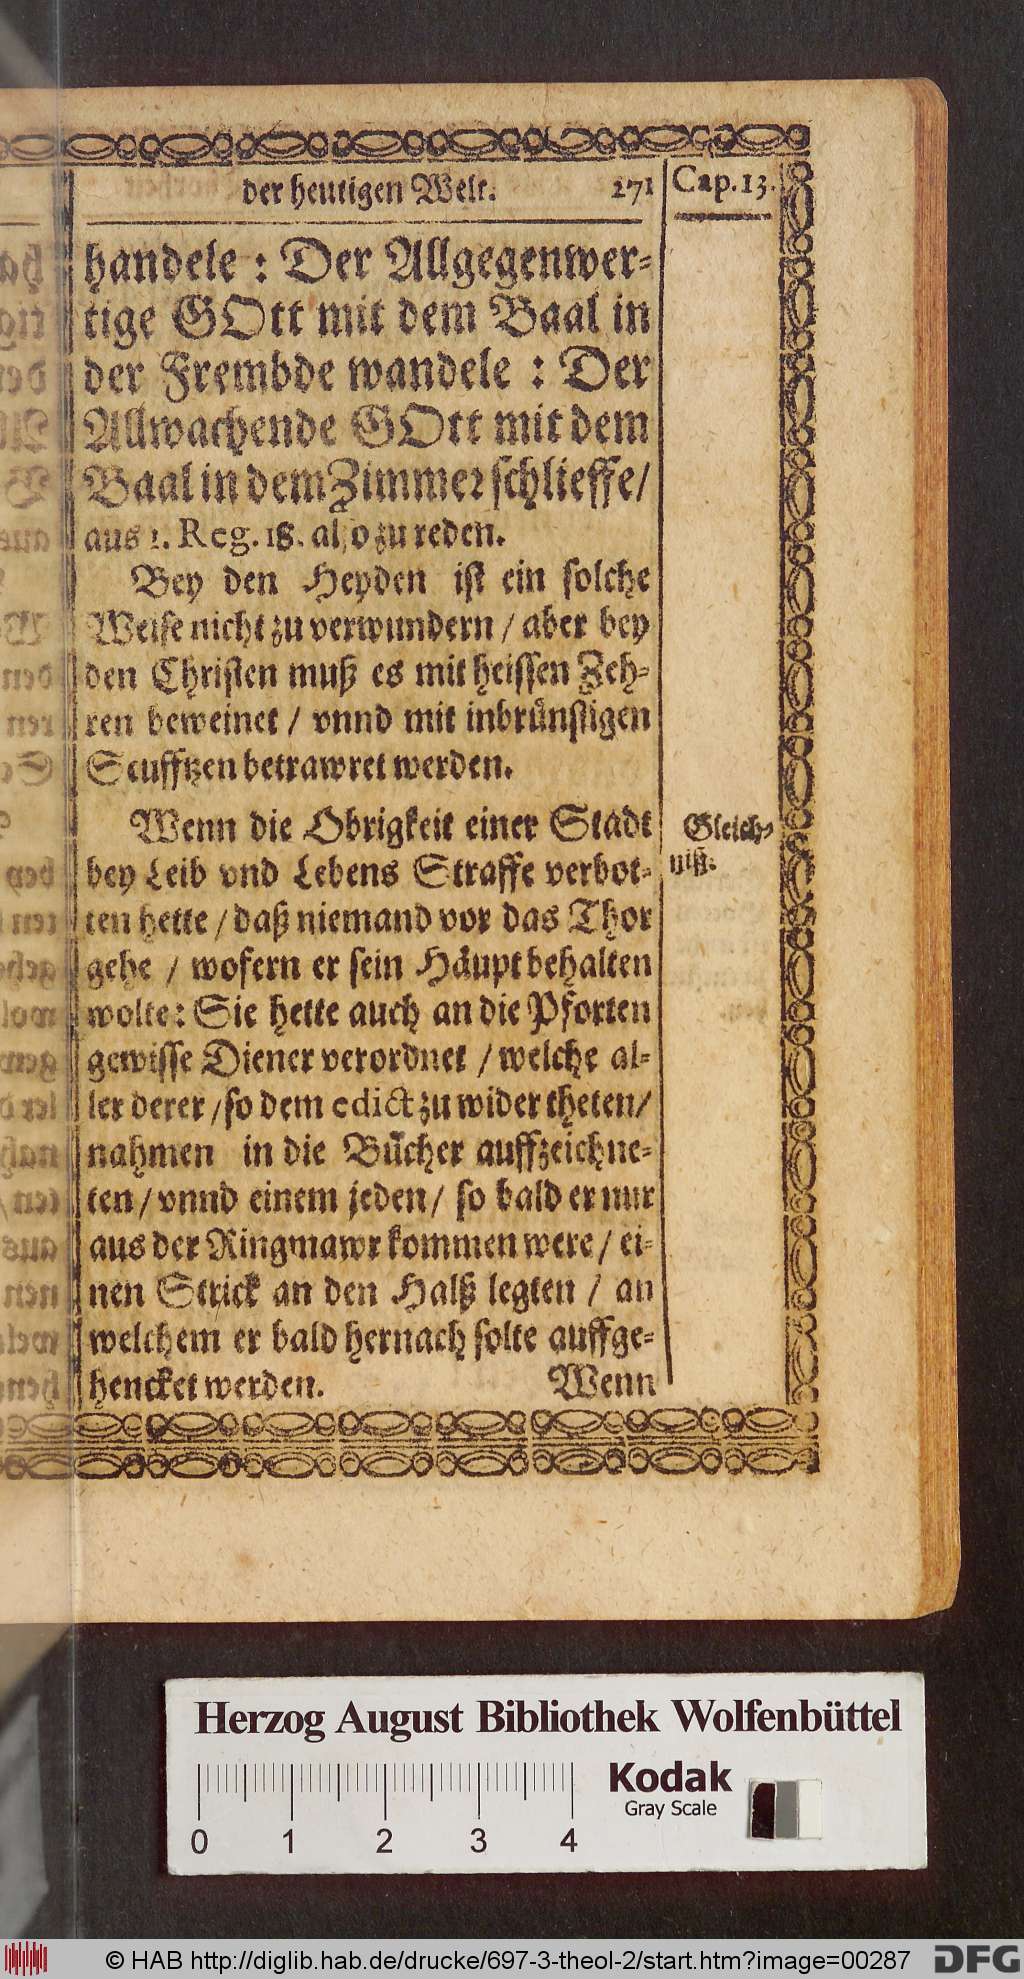 der heutigen Welt. 271 Cap. 13.
handele : Der Allgegenwer-
tige GOtt mit dem Baal in
der Frembde wandele : Der
Allwachende GOtt mit dem
Baal in dem Zimmer schlieffe/
aus 1. Reg. 18. also zu reden.
Bey den Heyden ist ein solche
Weise nicht zu verwundern / aber bey
den Christen muß es mit heissen Zeh-
ren beweinet / vnnd mit inbrünstigen
Seufftzen betrawret werden.
Wenn die Obrigkeit einer Stadt
Gleich-
niß.
bey Leib vnd Lebens Straffe verbot-
ten hette / daß niemand vor das Thor
gehe / wofern er sein Häupt behalten
wolte: Sie hette auch an die Pforten
gewisse Diener verordnet / welche al-
ler derer / so dem edict zu wider theten/
nahmen in die Bücher auffzeichne-
ten / vnnd einem jeden / so bald er nur
aus der Ringmawr kommen were / ei-
nen Strick an den Halß legten / an
welchem er bald hernach solte auffge-
hencket werden. Wenn
Herzog August Bibliothek Wolfenbüttel
0 1 2 3 4
Kodak
Gray Scale
© HAB http://diglib.hab.de/drucke/697-3-theol-2/start.htm?image=00287
DFG